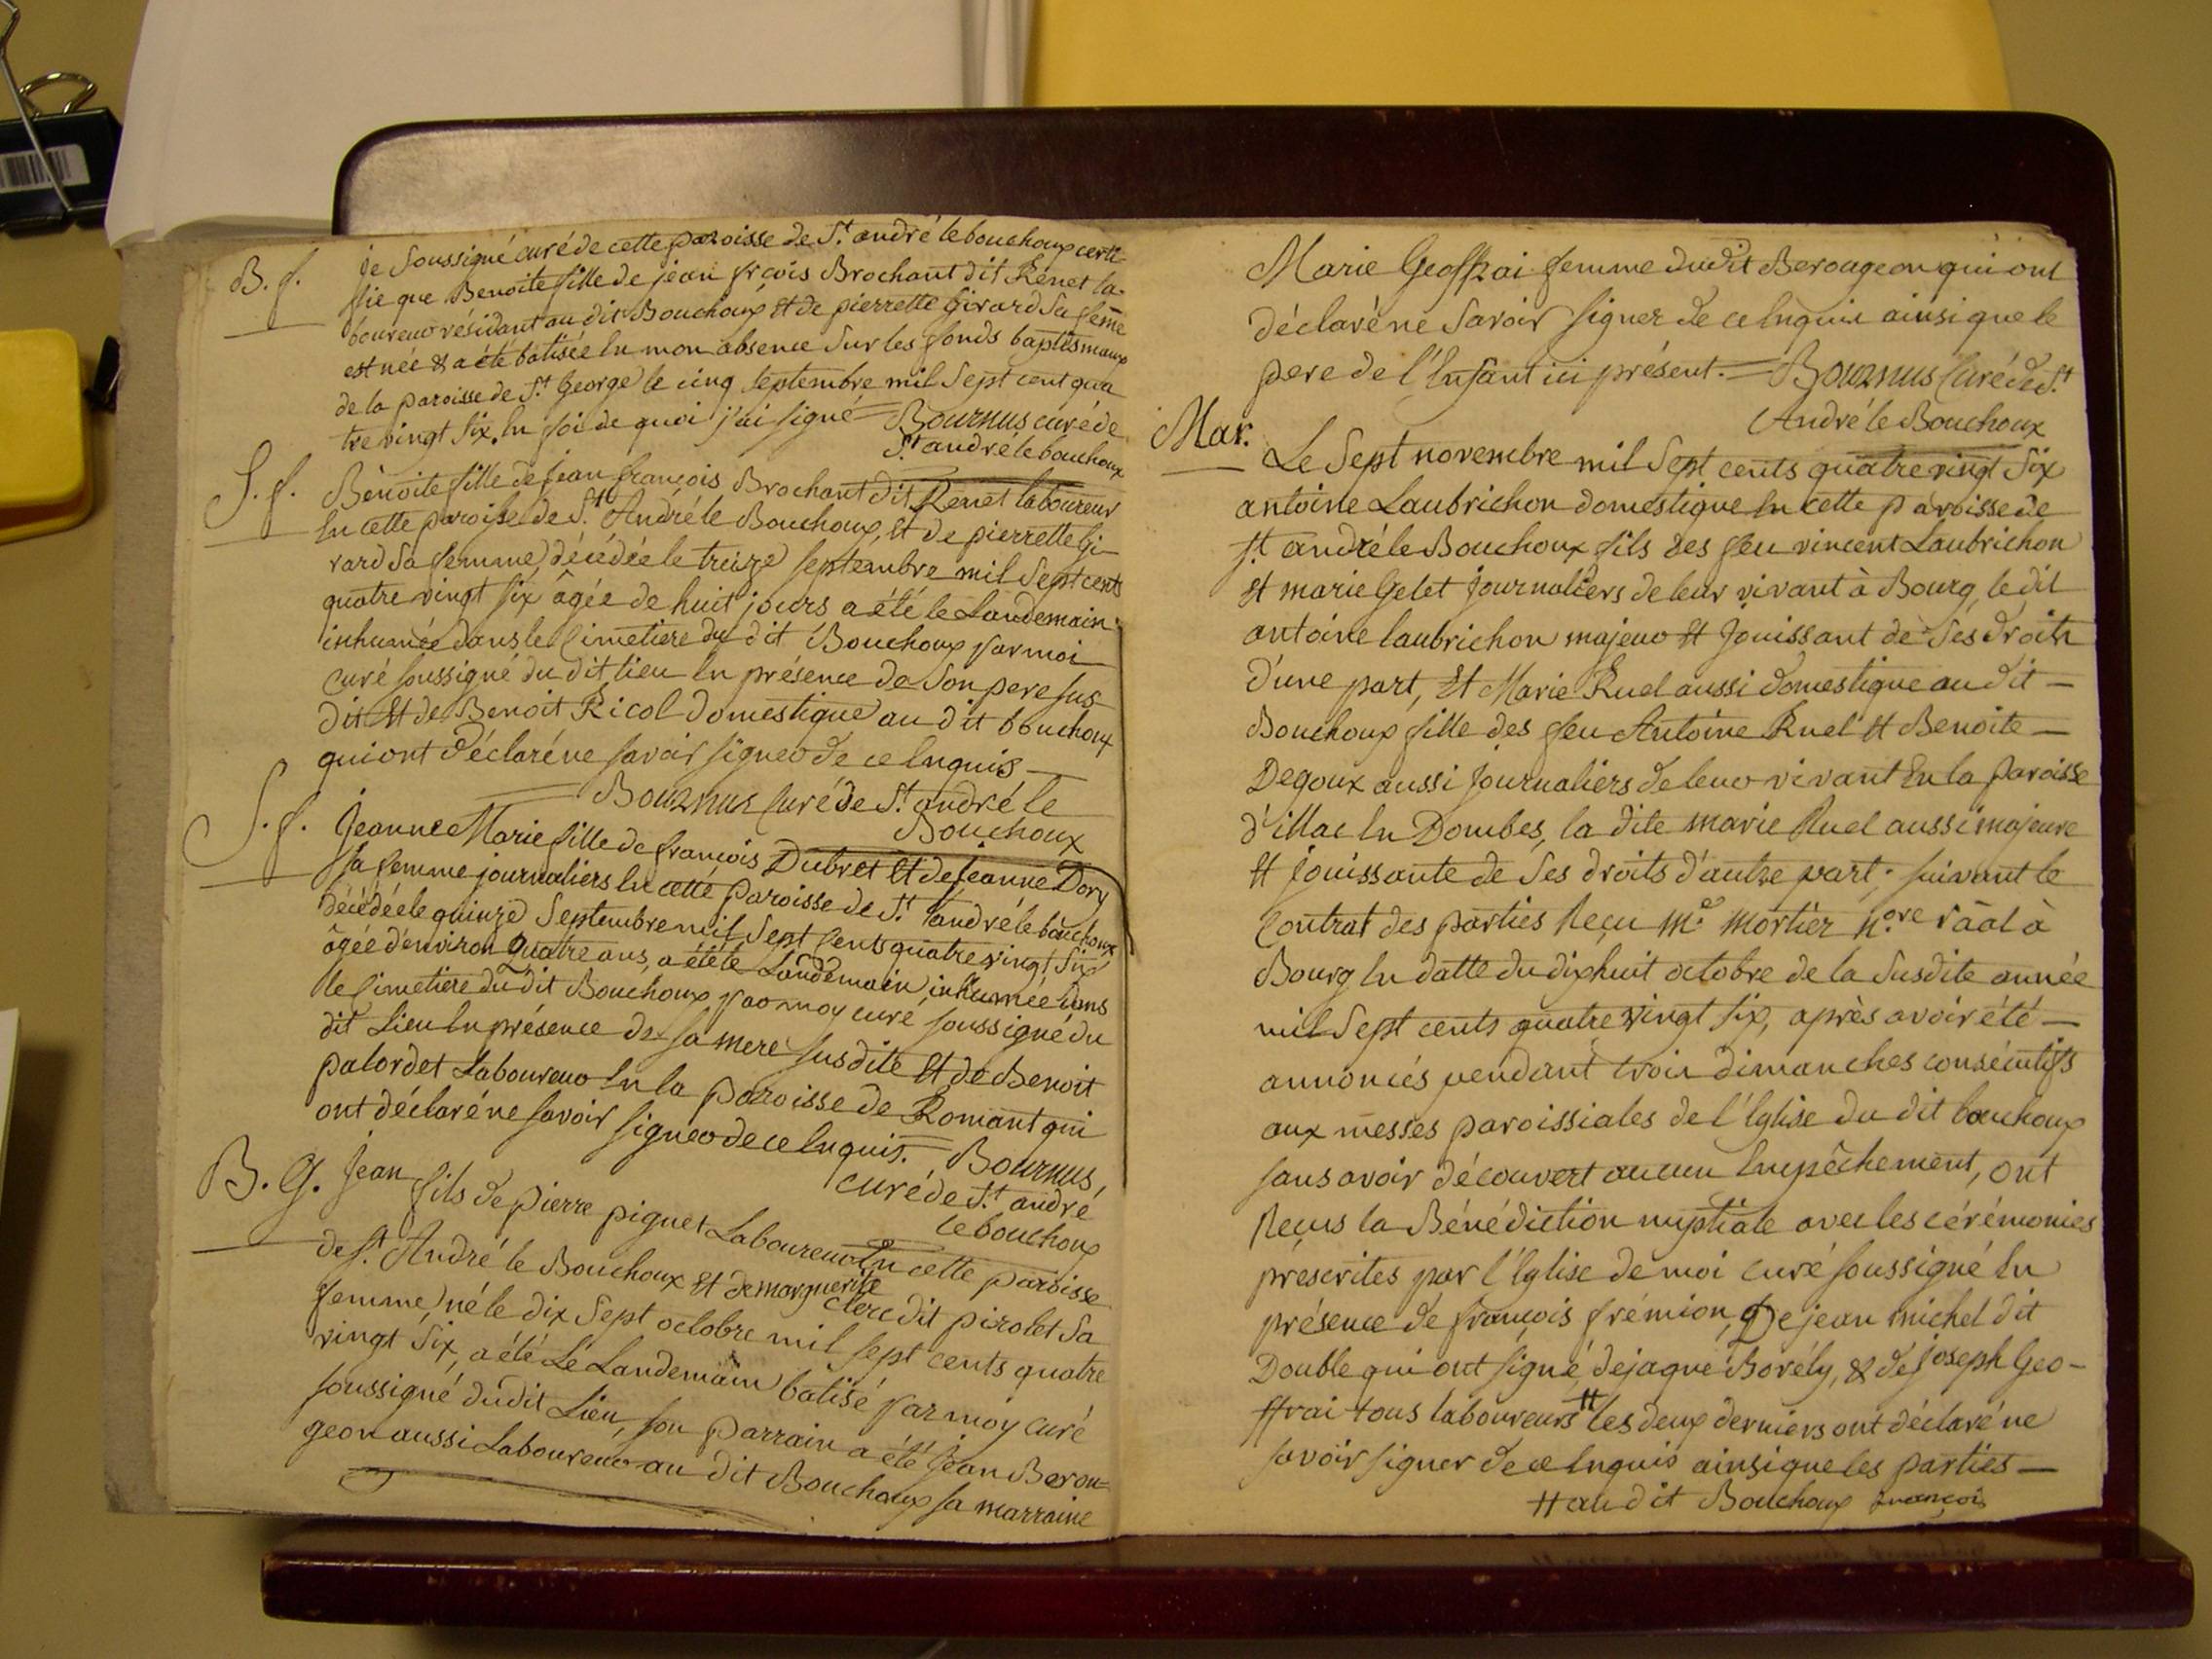 B. f.
je Soussigné curé de cette paroisse de St. andré le bouchoux certi-
fie que Benoite fille de jean frcois Brochant dit Renet la-
boureur résidant au dit Bouchoux Et de pierrette Girard Sa feme
est née & a été batisée En mon absence Sur les fonds baptismaux
de la paroisse de St. George le cinq Septembre mil Sept cent qua
tre vingt Six. En foi de quoi j'ai signé = Bournus curé de
St. andré le bouchoux
S. f.
Benoite fille de Jean françois Brochant dit Renet laboureur
En cette paroisse de St. André le Bouchoux, Et de pierrette Gi-
rard Sa femme, décédée le treize Septembre mil Sept cents
quatre vingt Six âgée de huit jours a été le Landemain
inhumée dans le Cimetiere du dit Bouchoux par moi
Curé soussigné du dit lieu En présence de Son pere sus-
dit Et de Benoit Ricol domestique au dit bouchoux
qui ont déclaré ne savoir signer de ce Enquis —
= Bournus Curé de St. andré le
Bouchoux
S. f.
Jeanne Marie fille de françois Dubret Et de Jeanne Dory
sa femme journaliers En cette paroisse de St. andré le bouchoux
décédée le quinze Septembre mil Sept Cents quatre vingt Six
âgée d'environ quatre ans, a été le Landemain inhumée dans
le Cimetiere du dit Bouchoux par moy curé soussigné du
dit Lieu En présence de sa mere susdite Et de Benoit
palordet Laboureur En la paroisse de Romant qui
ont déclaré ne savoir signer de ce Enquis. = Bournus,
curé de St. andré
le bouchoux
B. G.
Jean fils de pierre piguet Laboureur En cette paroisse
de St. André le Bouchoux Et de marguerite Clerc dit pirolet Sa
femme, né le dix Sept octobre mil sept cents quatre
vingt Six, a été Le Landemain batisé par moy curé
soussigné dudit Lieu, son parrain a été Jean Berou-
geon aussi Laboureur au dit Bouchoux sa marraine
Marie Geoffrai femme dudit Berougeon qui ont
déclaré ne Savoir signer de ce Enquis ainsi que le
pere de l'Enfant ici présent. = Bournus Curé de St.
André le Bouchoux
Mar.
Le Sept novembre mil Sept cents quatre vingt Six
antoine Laubrichon domestique En cette paroisse de
St. andré le Bouchoux fils des feu vincent Laubrichon
Et marie Gelet Journaliers de leur vivant à Bourg, le dit
antoine laubrichon majeur Et Jouissant de Ses droits
d'une part, Et Marie Ruel aussi domestique au dit —
Bouchoux fille des feu Antoine Ruel Et Benoite —
Degoux aussi Journaliers de leur vivant En la paroisse
d'illac En Dombes, la dite marie Ruel aussi majeure
Et Jouissante de Ses droits d'autre part; suivant le
Contrat des parties Reçu Me. Mortier N.ore raâl à
Bourg En datte du dixhuit octobre de la Susdite année
mil Sept cents quatre vingt Six, après avoir été —
annoncés pendant trois dimanches consécutifs
aux messes paroissiales de l'Eglise du dit bouchoux
sans avoir découvert aucun Empêchement, ont
Reçus la Bénédiction nuptiale avec les cérémonies
prescrites par l'Eglise de moi curé soussigné En
présence de françois frémion, De jean michel dit
Double qui ont signé, de jaque Borély, & de Joseph Geo-
ffrai tous laboureurs # les deux derniers ont déclaré ne
savoir signer de ce Enquis ainsi que les parties —
# au dit Bouchoux françois